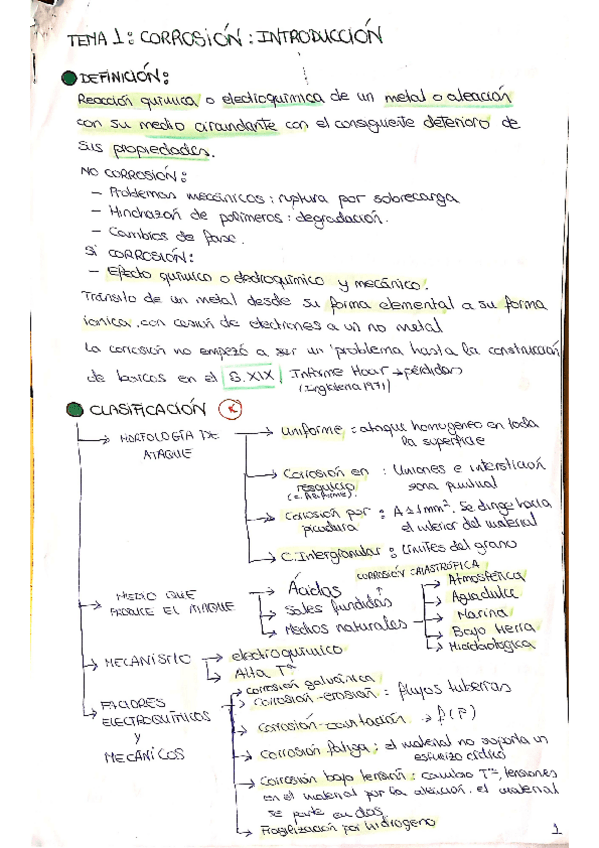 TEMA 1: CORROSIÓN: INTRODUCCIÓN
DEFINICIÓN:
Reacción química o electroquímica de un metal o aleación
con su medio circundante con el consiguiente deterioro de
sus propiedades.
NO CORROSIÓN:
– Problemas mecánicos: ruptura por sobrecarga
– Hinchazón de polímeros: degradación.
– Cambios de fase.
SI CORROSIÓN:
– Efecto químico o electroquímico y mecánico.
Tránsito de un metal desde su forma elemental a su forma
iónica, con cesión de electrones a un no metal
La corrosión no empezó a ser un problema hasta la construcción
de barcos en el S.XIX Informe Hoar → pérdidas
(Inglaterra 1971)
CLASIFICACIÓN
→ MORFOLOGÍA DE ATAQUE
→ Uniforme: ataque homogéneo en toda
la superficie
→ Corrosión en resquicio : Uniones e intersticios
zona puntual
→ Corrosión por picadura : A ≤ 1mm². Se dirige hacia
el interior del material
→ C. Intergranular : Límites del grano
→ MEDIO QUE PRODUCE EL ATAQUE
→ Ácidos
→ Sales fundidas
→ Medios naturales
CORROSIÓN CATASTRÓFICA
→ Atmosférica
→ Agua dulce
→ Marina
→ Bajo tierra
→ Microbiológica
→ MECANISMO
→ electroquímico
→ Alta Tª
→ FACTORES ELECTROQUÍMICOS Y MECÁNICOS
→ corrosión galvánica
→ corrosión-erosión : flujos tuberías
→ corrosión-cavitación → f(P)
→ corrosión fatiga : el material no soporta un
esfuerzo cíclico
→ Corrosión bajo tensión : cambio Tª, tensiones
en el material por la aleación. el material
se parte en dos
→ Fragilización por hidrógeno
1